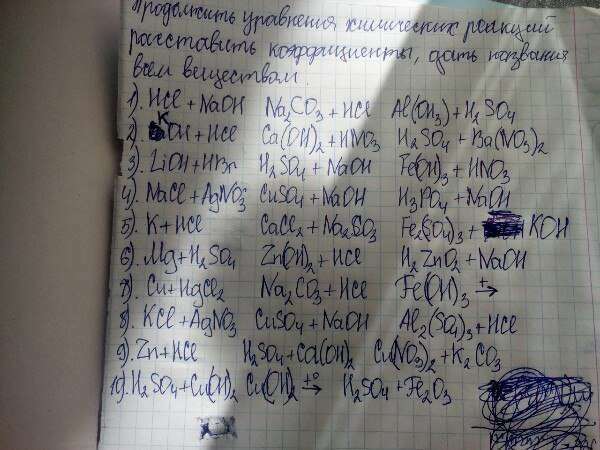 Продолжить уравнения химических реакций
расставить коэффициенты, дать названия
всем веществам.
1). HCl + NaOH   Na₂CO₃ + HCl   Al(OH)₃ + H₂SO₄
2). KOH + HCl   Ca(OH)₂ + HNO₃   H₂SO₄ + Ba(NO₃)₂
3). LiOH + HBr   H₂SO₄ + NaOH   Fe(OH)₃ + HNO₃
4). NaCl + AgNO₃   CuSO₄ + NaOH   H₃PO₄ + NaOH
5). K + HCl   CaCl₂ + Na₂SO₃   Fe₂(SO₄)₃ + KOH
6). Mg + H₂SO₄   Zn(OH)₂ + HCl   H₂ZnO₂ + NaOH
7). Cu + HgCl₂   Na₂CO₃ + HCl   Fe(OH)₃ t→
8). KCl + AgNO₃   CuSO₄ + NaOH   Al₂(SO₄)₃ + HCl
9). Zn + HCl   H₂SO₄ + Ca(OH)₂   Cu(NO₃)₂ + K₂CO₃
10). H₂SO₄ + Cu(OH)₂   Cu(OH)₂ t°→   H₂SO₄ + Fe₂O₃